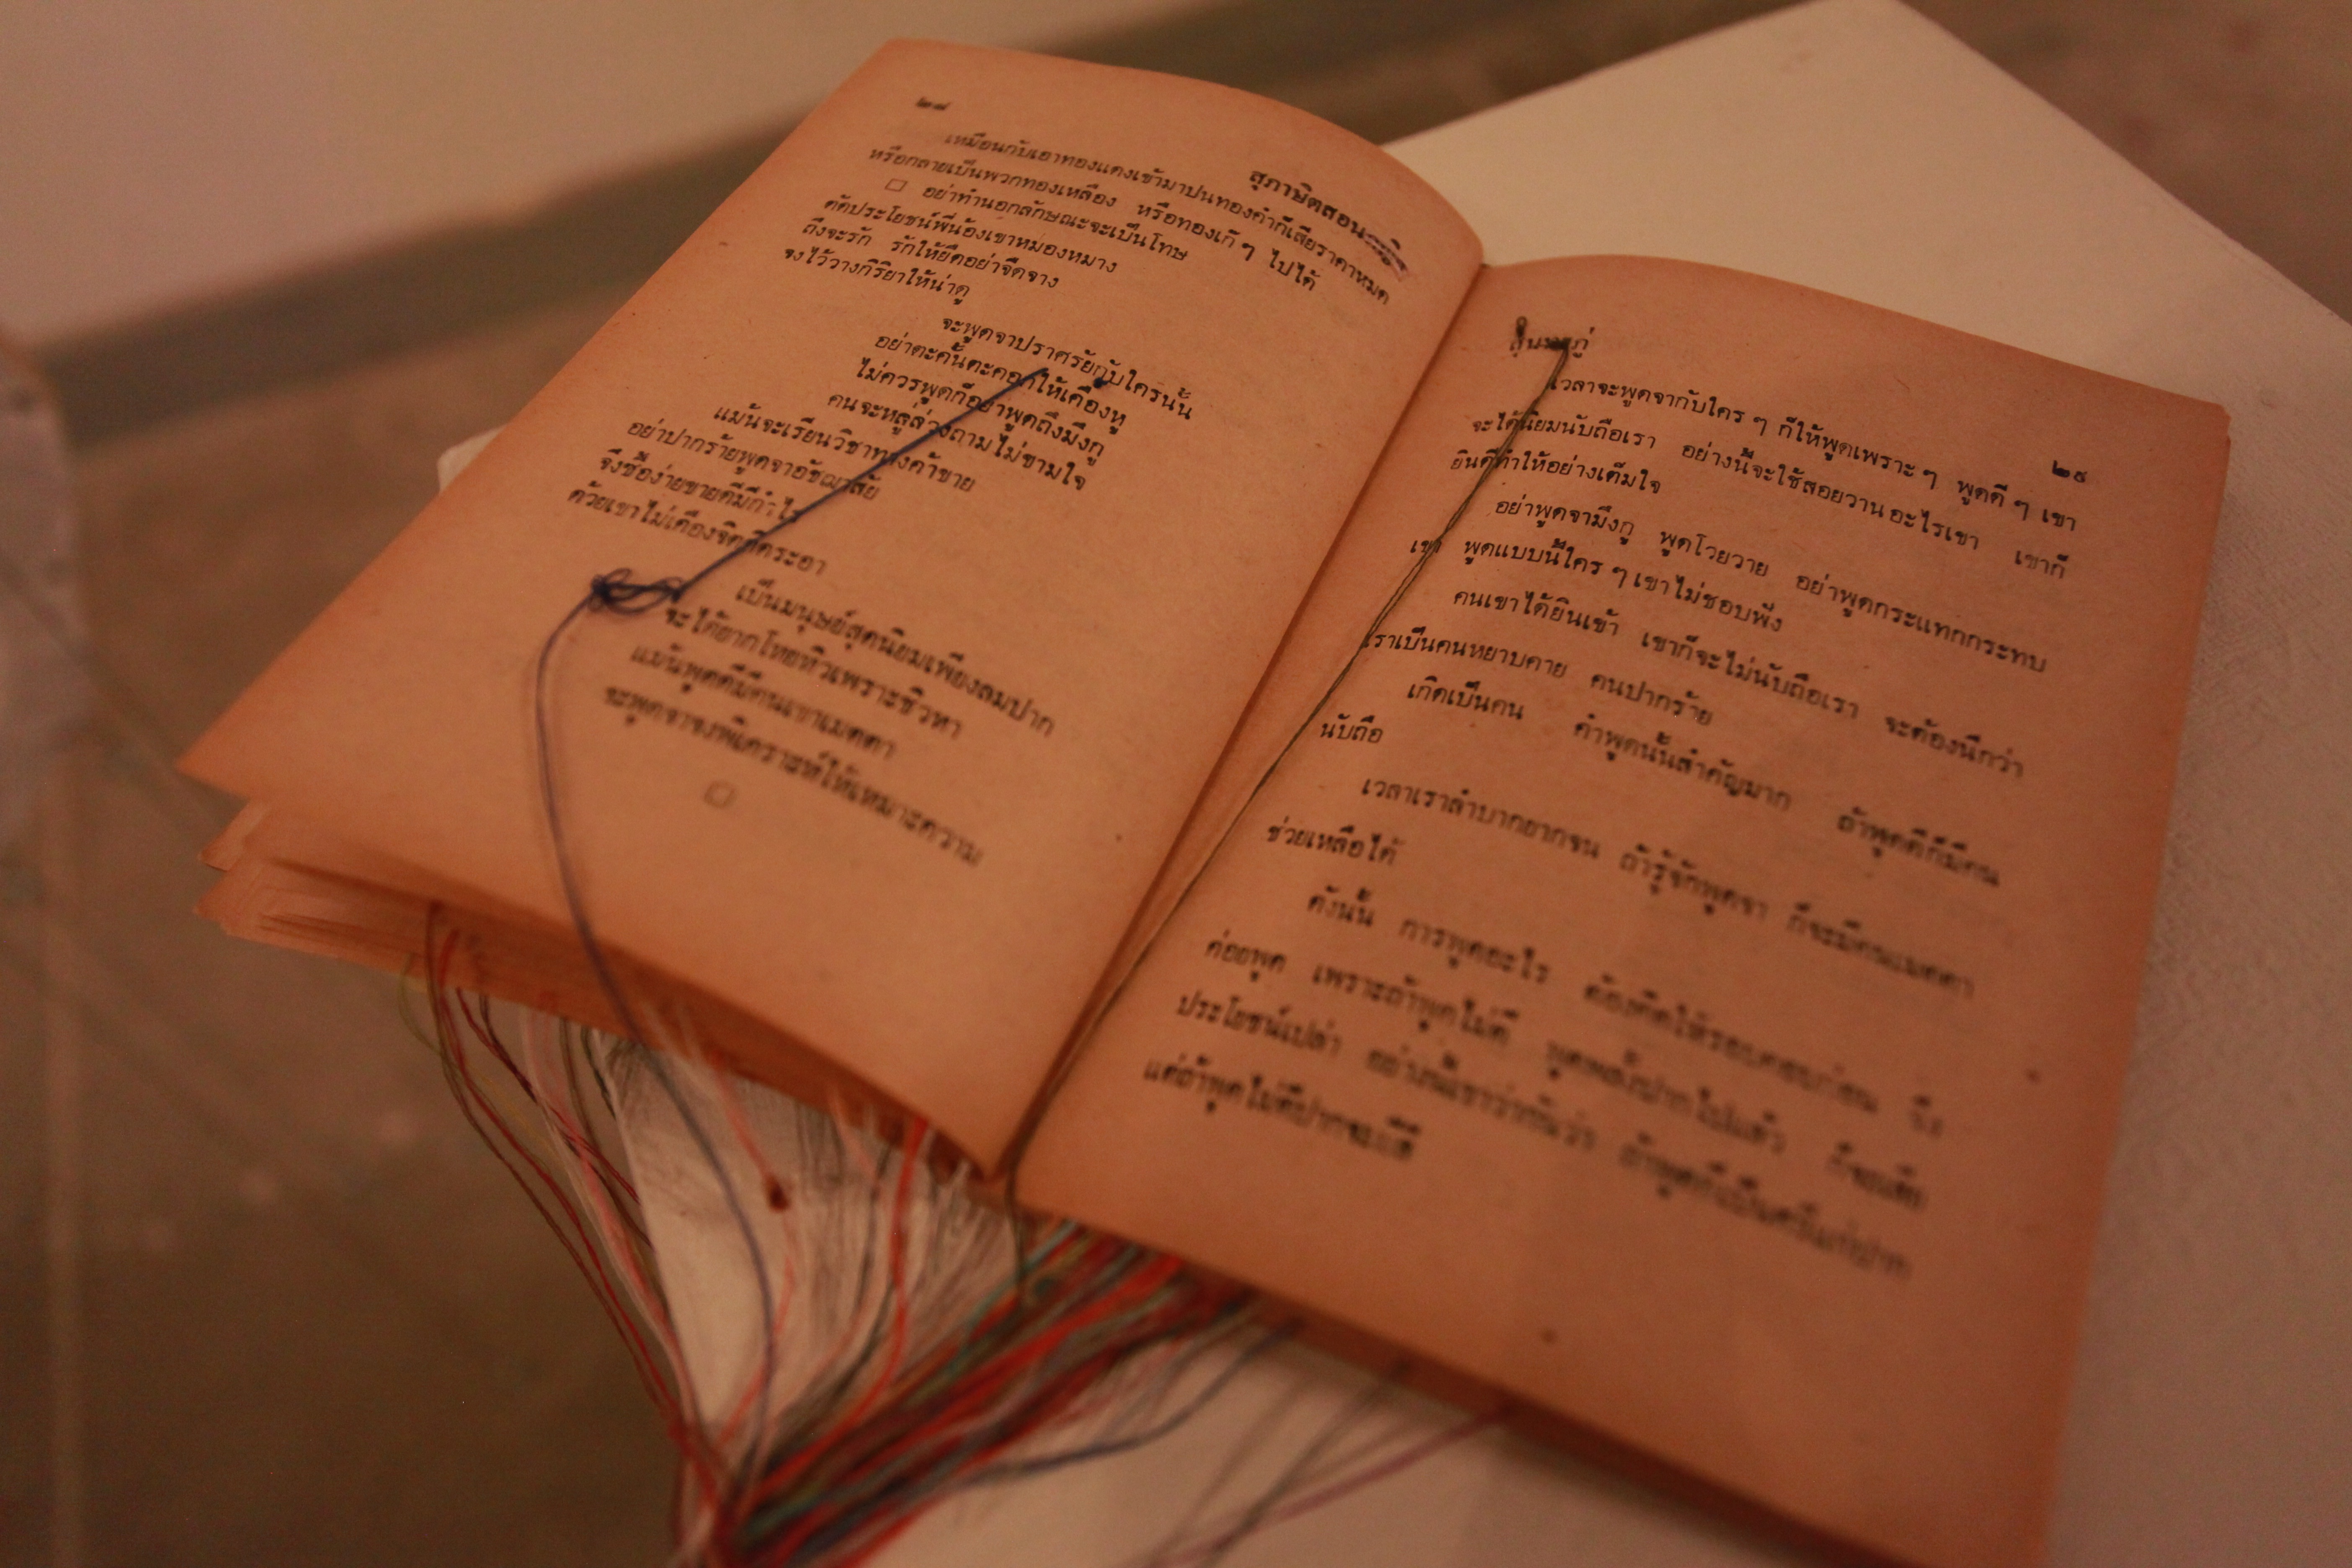 ๒๘
สุภาษิตสอน
เหมือนกับเอาทองแดงเข้ามาปนทองคำก็เสียราคาหมด
หรือกลายเป็นพวกทองเหลือง หรือทองเก๊ ๆ ไปได้
อย่าทำนอกลักษณะจะเป็นโทษ
ตัดประโยชน์พี่น้องเขาหมองหมาง
ถึงจะรัก รักให้ยืดอย่าจืดจาง
จงไว้วางกิริยาให้น่าดู
จะพูดจาปราศรัยกับใครนั้น
อย่าตะคั้นตะคอกให้เคืองหู
ไม่ควรพูดก็อย่าพูดถึงมึงกู
คนจะหลู่ล่วงถามไม่ขามใจ
แม้นจะเรียนวิชาทางค้าขาย
อย่าปากร้ายพูดจาอัชฌาสัย
จึงซื้อง่ายขายดีมีกำไร
ด้วยเขาไม่เคืองจิตคิดระอา
เป็นมนุษย์สุดนิยมเพียงลมปาก
จะได้ยากโหยหิวเพราะชิวหา
แม้นพูดดีมีคนเขาเมตตา
จะพูดจาจงพิเคราะห์ให้เหมาะความ
สุนทรภู่
๒๙
เวลาจะพูดจากับใคร ๆ ก็ให้พูดเพราะ ๆ พูดดี ๆ เขา
จะได้นิยมนับถือเรา อย่างนี้จะใช้สอยวานอะไรเขา เขาก็
ยินดีทำให้อย่างเต็มใจ
อย่าพูดจามึงกู พูดโวยวาย อย่าพูดกระแทกกระทบ
เขา พูดแบบนี้ใคร ๆ เขาไม่ชอบฟัง
คนเขาได้ยินเข้า เขาก็จะไม่นับถือเรา จะต้องนึกว่า
เราเป็นคนหยาบคาย คนปากร้าย
เกิดเป็นคน คำพูดนั้นสำคัญมาก ถ้าพูดดีก็มีคน
นับถือ
เวลาเราลำบากยากจน ถ้ารู้จักพูดจา ก็จะมีคนเมตตา
ช่วยเหลือได้
ดังนั้น การพูดอะไร ต้องคิดให้รอบคอบก่อน จึง
ค่อยพูด เพราะถ้าพูดไม่ดี พูดพลั้งปากไปแล้ว ก็จะเสีย
ประโยชน์เปล่า อย่างที่เขาว่ากันว่า ถ้าพูดดีเป็นศรีแก่ปาก
แต่ถ้าพูดไม่ดีปากจะมีสี